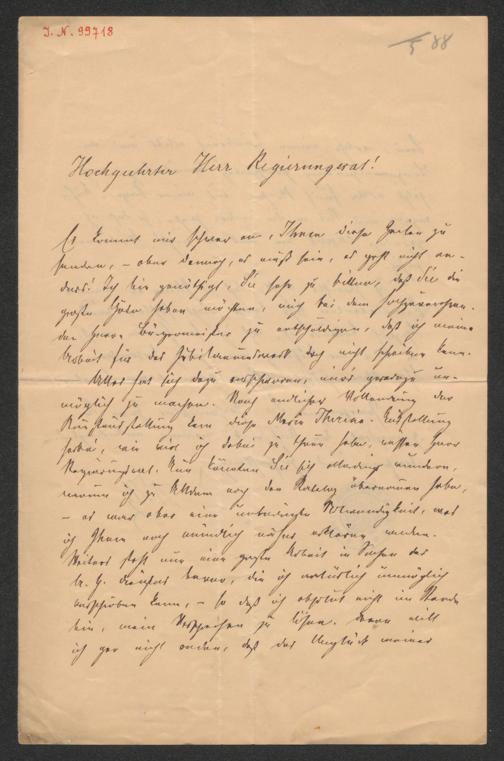 I. N. 99718
88
Hochgeehrter Herr Regierungsrat!
Es kommt mir schwer an, Ihnen diese Zeilen zu
senden, – aber dennoch, es muß sein, es geht nicht an-
ders! Ich bin genöthigt, Sie sehr zu bitten, daß Sie die
große Güte haben möchten, mich bei dem
den Herrn Bürgermeister zu entschuldigen, daß ich meine
Arbeit für das Jubiläumswerk doch nicht schreiben kann.
Alles hat sich dazu verschworen, mir's geradezu un-
möglich zu machen. Nach endlicher Vollendung der
Kunstausstellung kam diese Maria Theresia-Ausstellung
wie viel ich dabei zu thun habe, wissen Herr
Regierungsrat. Nun könnten Sie sich allerdings wundern,
warum ich zu Alldem noch den Katalog übernommen habe,
– es war aber eine unbedingte Nothwendigkeit, was
ich Ihnen noch mündlich näher erklären werde.
Weiters steht nun eine große Arbeit in Sachen der
bevor, die ich natürlich unmöglich
verschieben kann, – so daß ich absolut nicht im Stande
bin, mein Versprechen zu lösen. Davon will
ich gar nicht reden, daß das Unglück meiner